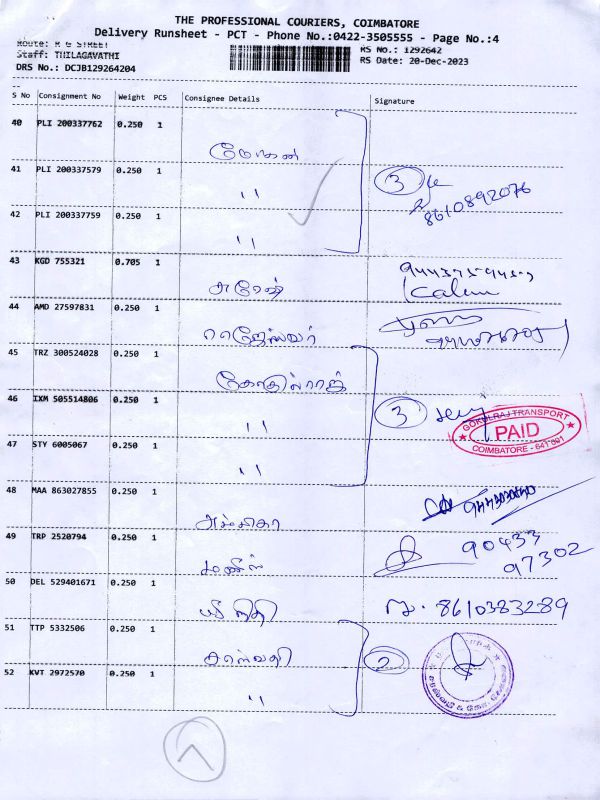 THE PROFESSIONAL COURIERS, COIMBATORE
Delivery Runsheet - PCT - Phone No.:0422-3505555 - Page No.:4
Route: R G STREET
Staff: THILAGAVATHI
DRS No.: DCJB129264204
RS No.: 1292642
RS Date: 20-Dec-2023
S No Consignment No Weight PCS Consignee Details Signature
40 PLI 200337762 0.250 1
மோகன்
41 PLI 200337579 0.250 1
〃
3
8610892076
42 PLI 200337759 0.250 1
〃
43 KGD 755321 0.705 1
சுரேஷ்
44 AMD 27597831 0.250 1
ராஜேஸ்வர்
45 TRZ 300524028 0.250 1
கோகுல்ராஜ்
46 IXM 505514806 0.250 1
〃
3
GOKULRAJ TRANSPORT
PAID
COIMBATORE - 641 001
47 STY 6005067 0.250 1
〃
48 MAA 863027855 0.250 1
அம்பிகா
49 TRP 2520794 0.250 1
90433
97302
50 DEL 529401671 0.250 1
8610383289
51 TTP 5332506 0.250 1
2
52 KVT 2972570 0.250 1
〃